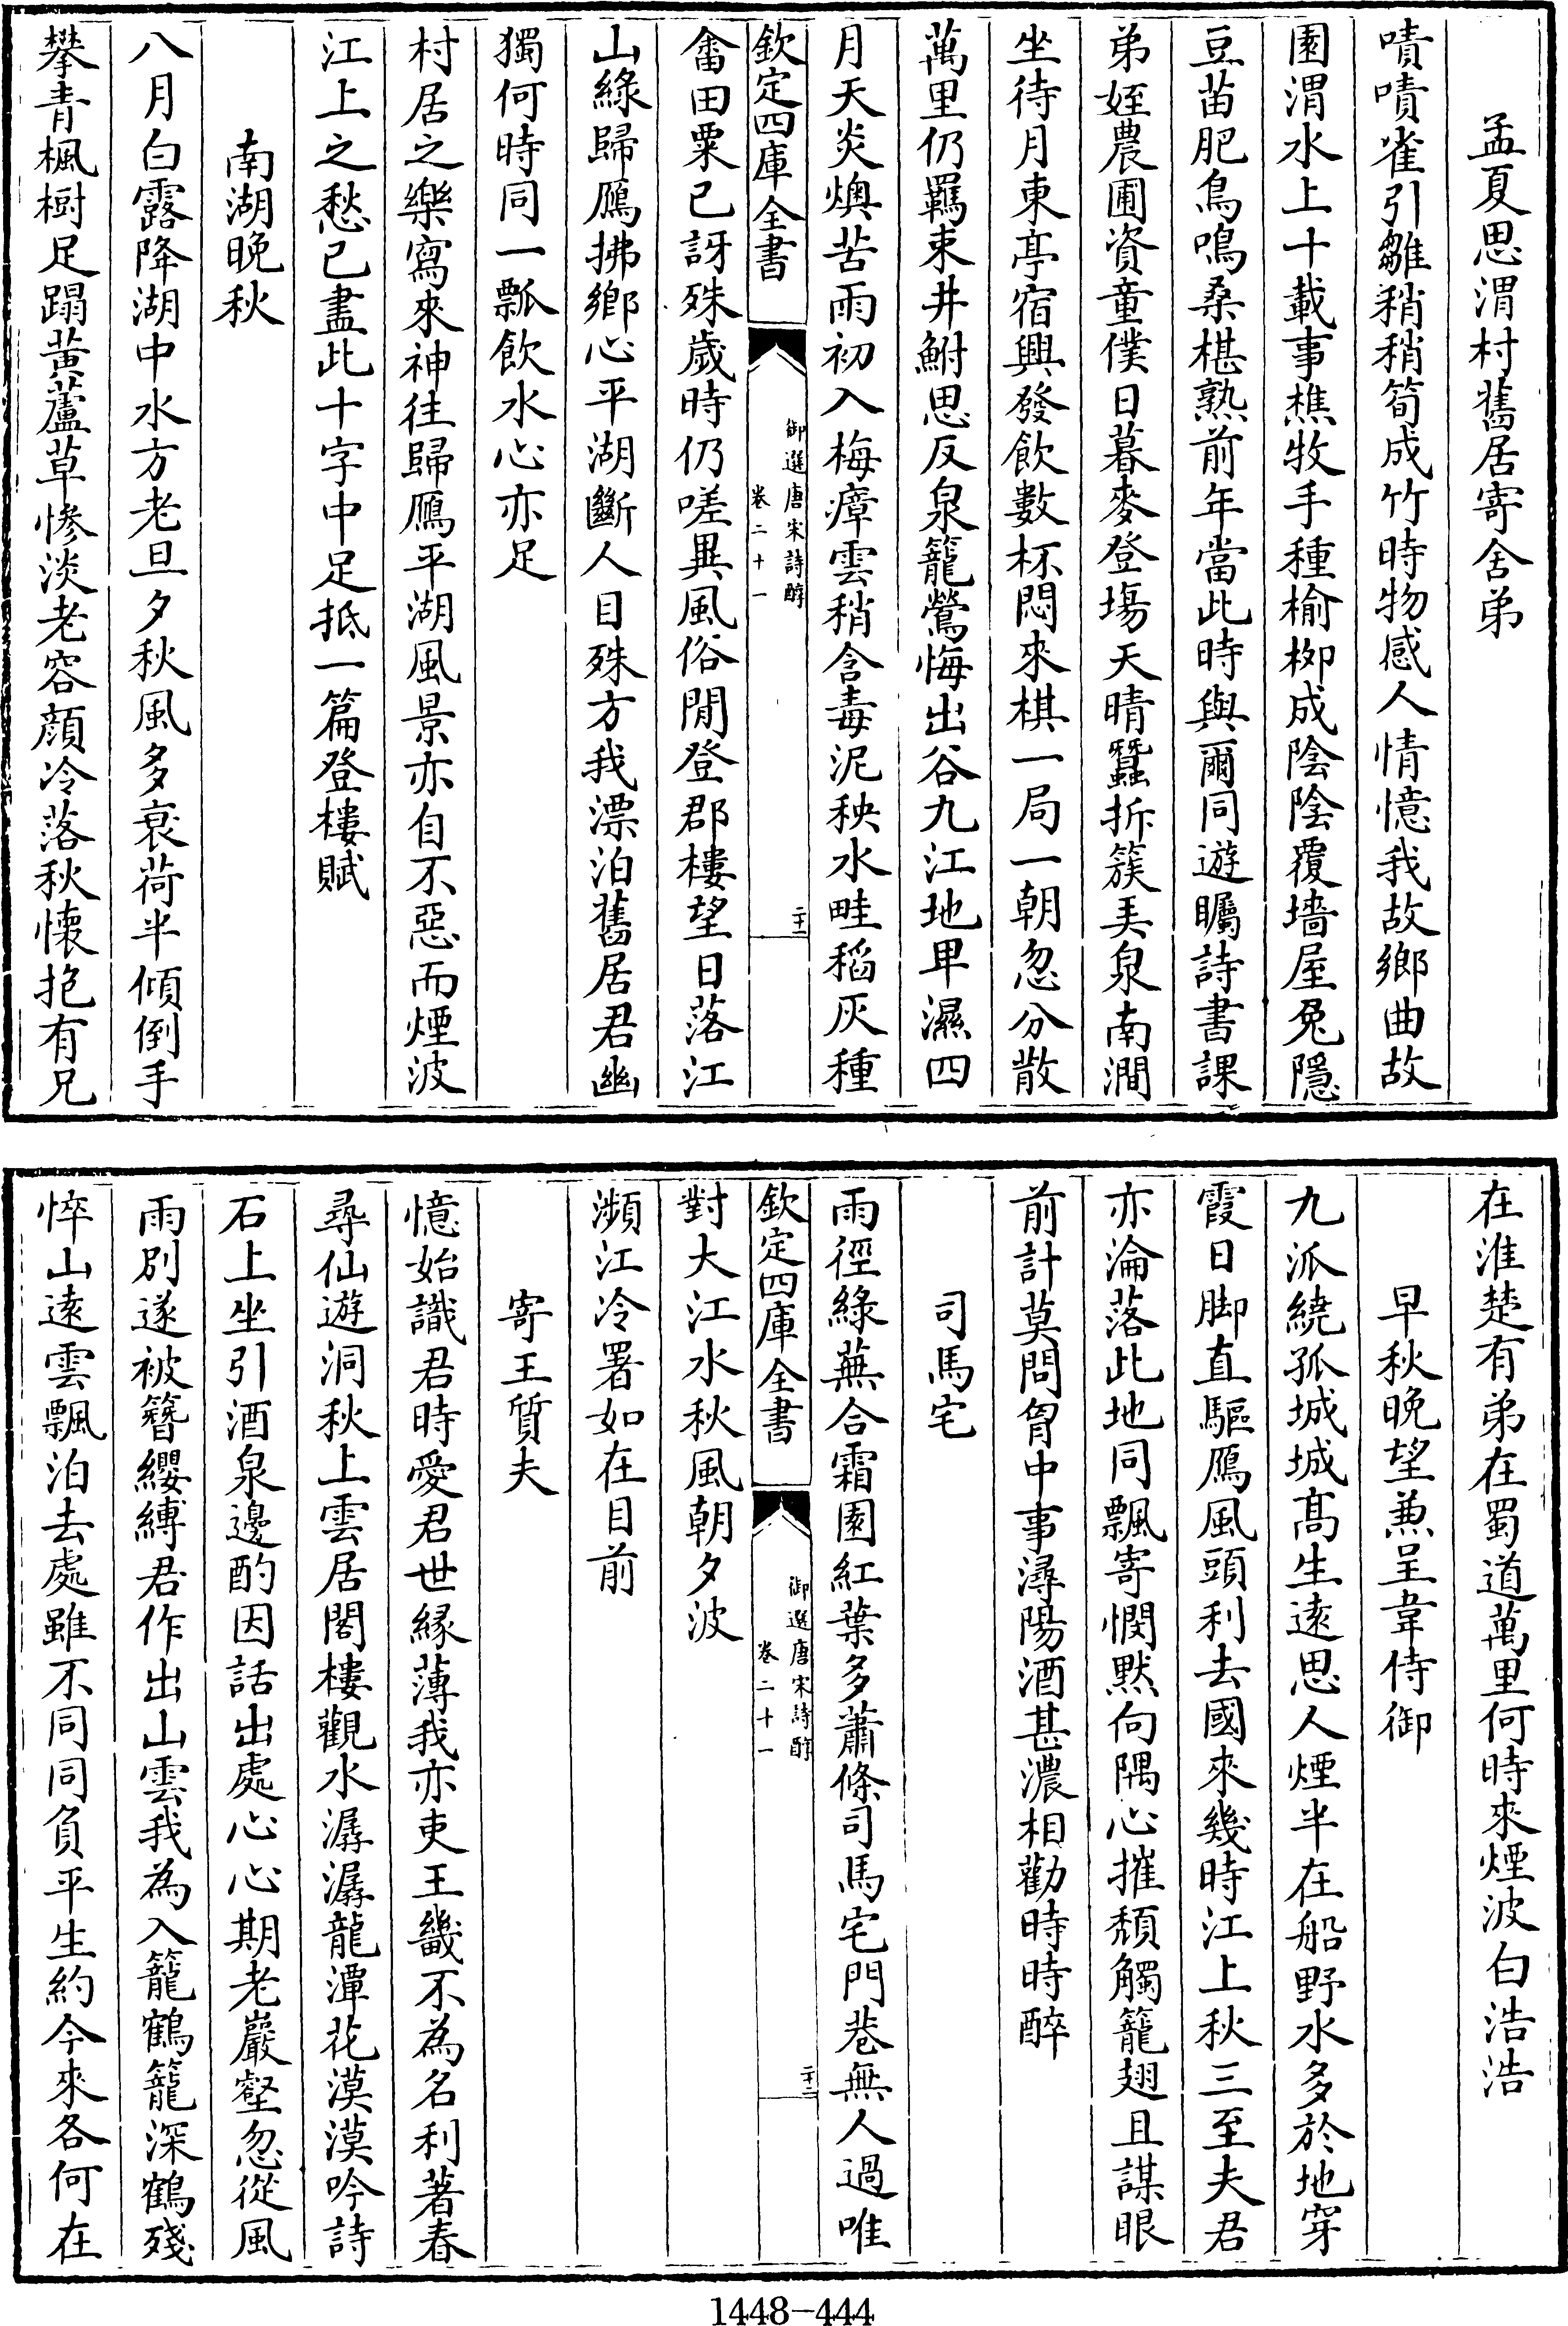 孟夏思渭村舊居寄舍弟
嘖嘖雀引雛稍稍筍成竹時物感人情憶我故鄉曲故
園渭水上十載事樵牧手種榆栁成陰陰覆墻屋兔隱
豆苗肥鳥鳴桑椹熟前年當此時與爾同遊矚詩書課
弟姪農圃資童僕日暮麥登塲天晴蠶拆簇弄泉南澗
坐待月東亭宿興發飲數杯悶來棋一局一朝忽分散
萬里仍羈束井鮒思反泉籠鶯悔出谷九江地卑濕四
月天炎燠苦雨初入梅瘴雲稍含毒泥秧水畦稻灰種
欽定四庫全書
御選唐宋詩醇
卷二十一
二十二
畬田粟已訝殊歲時仍嗟異風俗閒登郡樓望日落江
山綠歸鴈拂鄉心平湖斷人目殊方我漂泊舊居君幽
獨何時同一瓢飲水心亦足
村居之樂寫來神往歸鴈平湖風景亦自不惡而煙波
江上之愁已盡此十字中足抵一篇登樓賦
南湖晚秋
八月白露降湖中水方老旦夕秋風多衰荷半傾倒手
攀青楓樹足蹋黃蘆草慘淡老容顔冷落秋懷抱有兄
在淮楚有弟在蜀道萬里何時來煙波白浩浩
早秋晚望兼呈韋侍御
九派繞孤城城髙生遠思人煙半在船野水多於地穿
霞日脚直驅鴈風頭利去國來幾時江上秋三至夫君
亦淪落此地同飄寄憫默向隅心摧頹觸籠翅且謀眼
前計莫問胷中事潯陽酒甚濃相勸時時醉
司馬宅
雨徑綠蕪合霜園紅葉多蕭條司馬宅門巷無人過唯
欽定四庫全書
御選唐宋詩醇
卷二十一
二十三
對大江水秋風朝夕波
瀕江冷署如在目前
寄王質夫
憶始識君時愛君世緣薄我亦吏王畿不為名利著春
尋仙遊洞秋上雲居閣樓觀水潺潺龍潭花漠漠吟詩
石上坐引酒泉邊酌因話出處心心期老巖壑忽從風
雨別遂被簪纓縛君作出山雲我為入籠鶴籠深鶴殘
悴山遠雲飄泊去處雖不同同負平生約今來各何在
1448-444